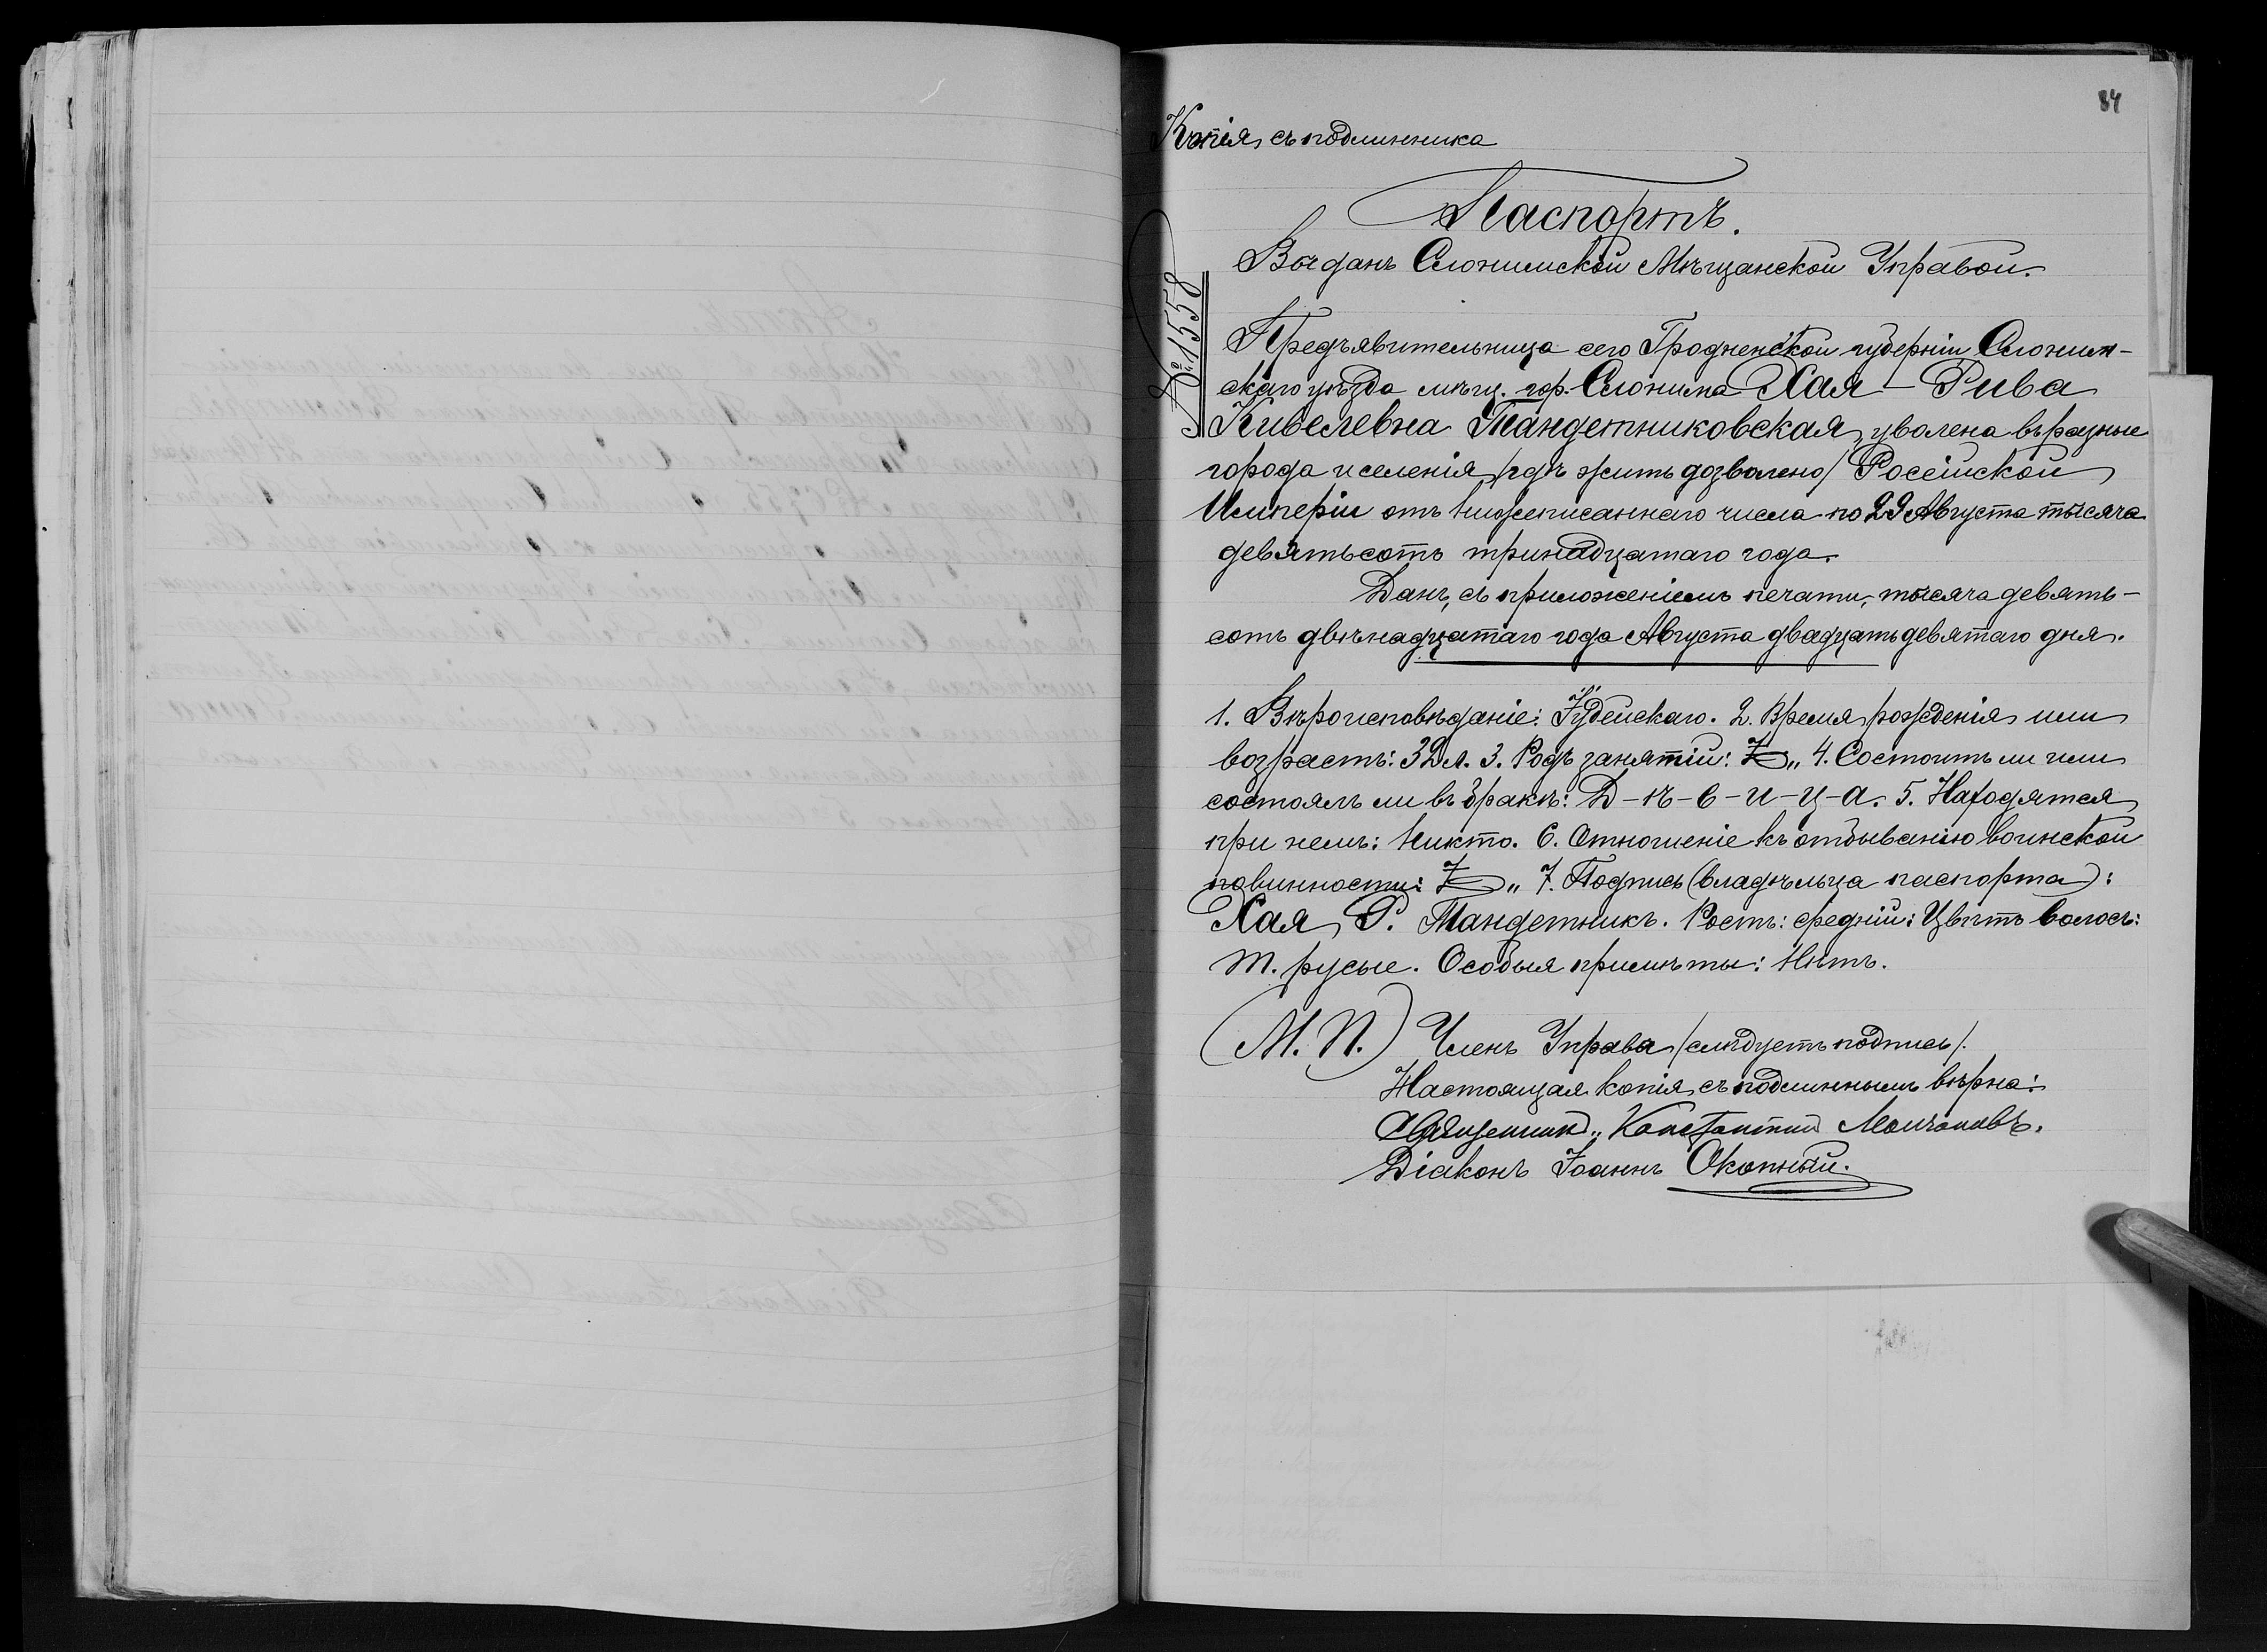 84
Копія съ подлинника
Паспортъ.
Выданъ Слонимской Мѣщанской Управой.
№ 1558
Предъявительница сего Гродненской губерніи Слоним-
скаго уѣзда мѣщ. гор. Слонима Хая - Рива
Кивелевна Тандетниковская, уволена въ разные
города и селенія /гдѣ жить дозволено/ Россійской
Имперіи отъ нижеписаннаго числа по 29 Августа тысяча
девятьсотъ тринадцатаго года.
Данъ, съ приложеніемъ печати, тысяча девять-
сотъ двѣнадцатаго года Августа двадцать девятаго дня.
1. Вѣроисповѣданіе: Іудейскаго. 2. Время рожденія или
возрастъ: 32 л. 3. Родъ занятій: 4. Состоитъ ли или
состоялъ ли въ бракѣ: Д-ѣ-в-и-ц-а. 5. Находятся
при немъ: Никто. 6. Отношеніе къ отбыванію воинской
повинности: 7. Подпись (владѣльца паспорта):
Хая Р. Тандетникъ. Ростъ: средній: Цвѣтъ волосъ:
т. русые. Особыя примѣты: Нѣтъ.
(М. П.) Членъ Управы /слѣдуетъ подпись/.
Настоящая копія съ подлиннымъ вѣрна:
Священник Константин
Діаконъ Іоаннъ Окопный.